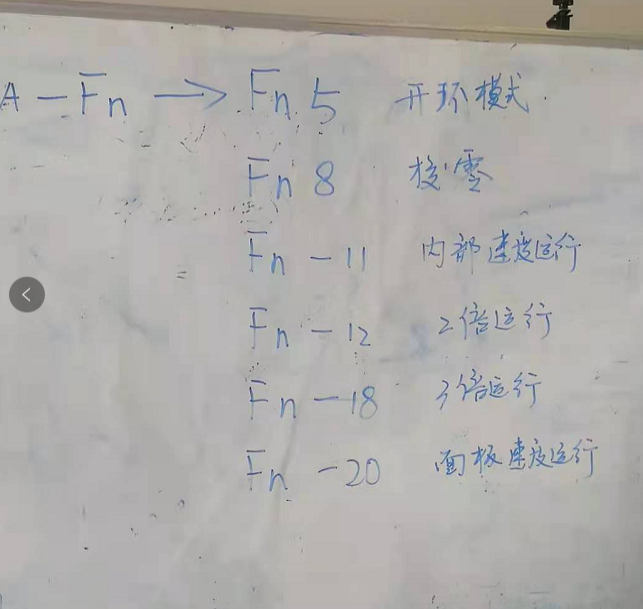 A — Fn → Fn 5 开环模式
Fn 8 校零
Fn - 11 内部速度运行
Fn - 12 2倍运行
Fn - 18 3倍运行
Fn - 20 面板速度运行